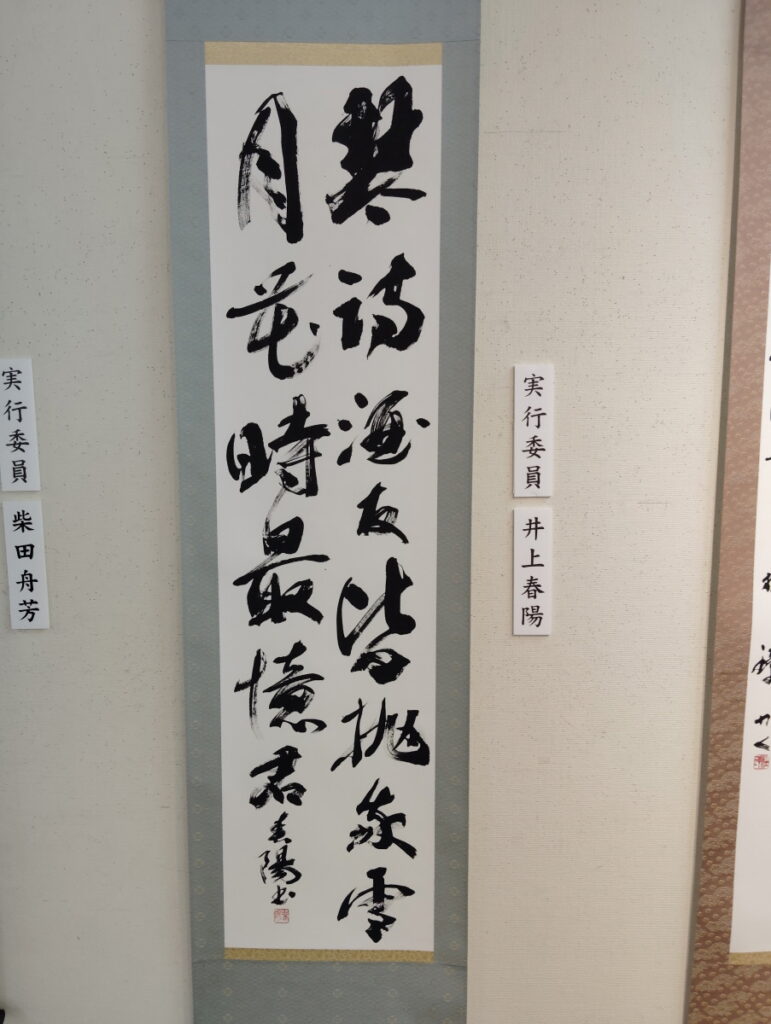 琴詩酒友皆抛我雪
月花時最憶君
春陽書
実行委員
井上春陽
実行委員
柴田舟芳